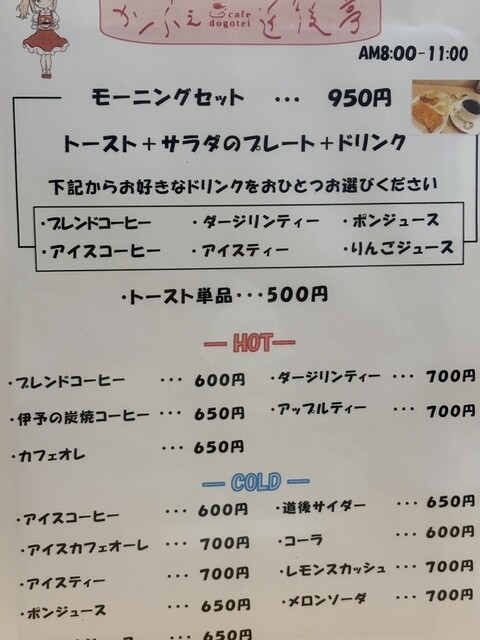 かふぇ cafe dogotei 道後亭
AM8:00-11:00
モーニングセット ・・・ 950円
トースト+サラダのプレート+ドリンク
下記からお好きなドリンクをおひとつお選びください
・ブレンドコーヒー ・ダージリンティー ・ポンジュース
・アイスコーヒー ・アイスティー ・りんごジュース
・トースト単品・・・500円
― HOT―
・ブレンドコーヒー ・・・ 600円 ・ダージリンティー ・・・ 700円
・伊予の炭焼コーヒー ・・・ 650円 ・アップルティー ・・・ 700円
・カフェオレ ・・・ 650円
― COLD ―
・アイスコーヒー ・・・ 600円 ・道後サイダー ・・・ 650円
・アイスカフェオーレ ・・・ 700円 ・コーラ ・・・ 600円
・アイスティー ・・・ 700円 ・レモンスカッシュ ・・・ 700円
・ポンジュース ・・・ 650円 ・メロンソーダ ・・・ 700円
・・・ 650円